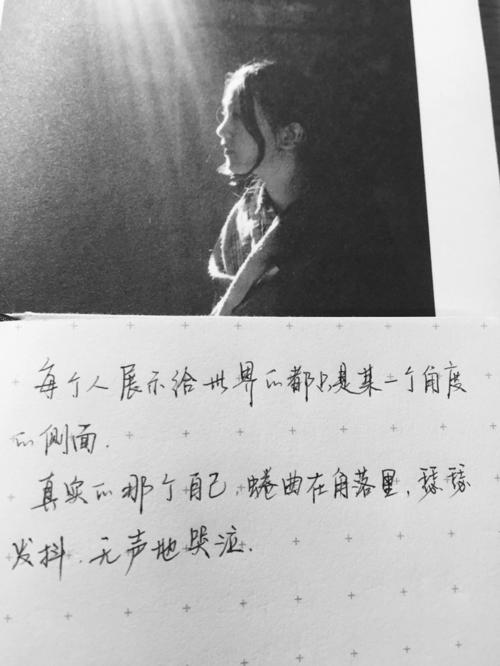 每个人展示给世界的都只是某一个角度
的侧面.
真实的那个自己,蜷曲在角落里,瑟瑟
发抖,无声地哭泣.